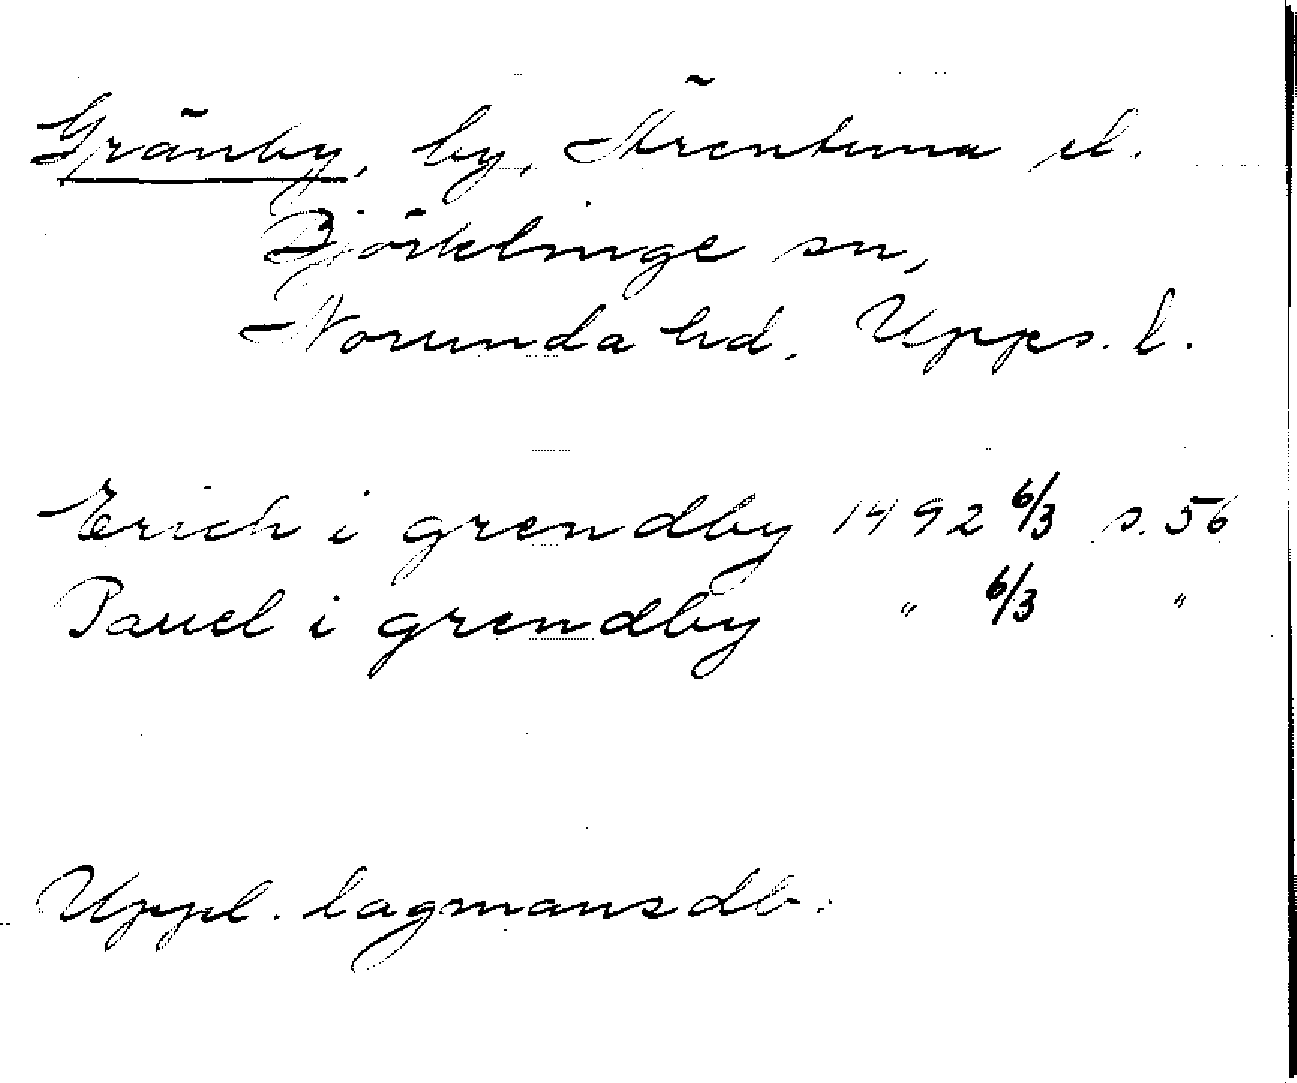 Gränby, by, Ärentuna el.
Björklinge sn,
Norunda hd. Upps. l.
Erich i grendby 1492 6/3 s. 56
Pauel i grendby " 6/3 "
Uppl. lagmansdb.